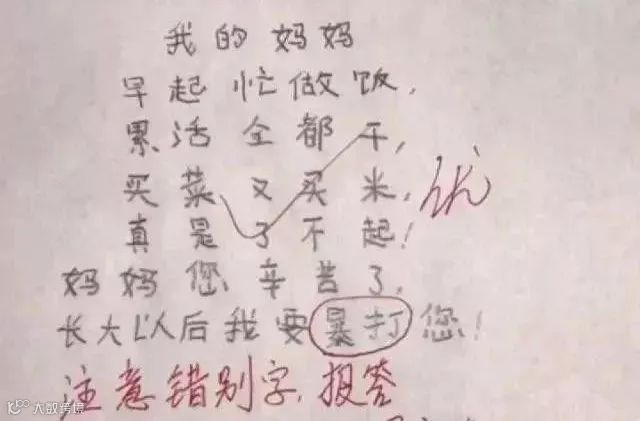 我的妈妈
早起忙做饭，
累活全都干，
买菜又买米，
优
真是了不起！
妈妈您辛苦了，
长大以后我要暴打您！
注意错别字，报答
大数跨境